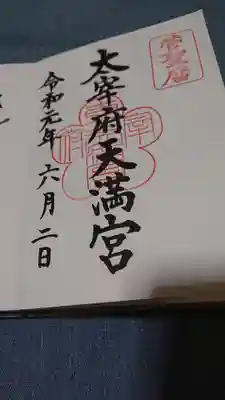 太宰府天満宮
令和元年 六月二日